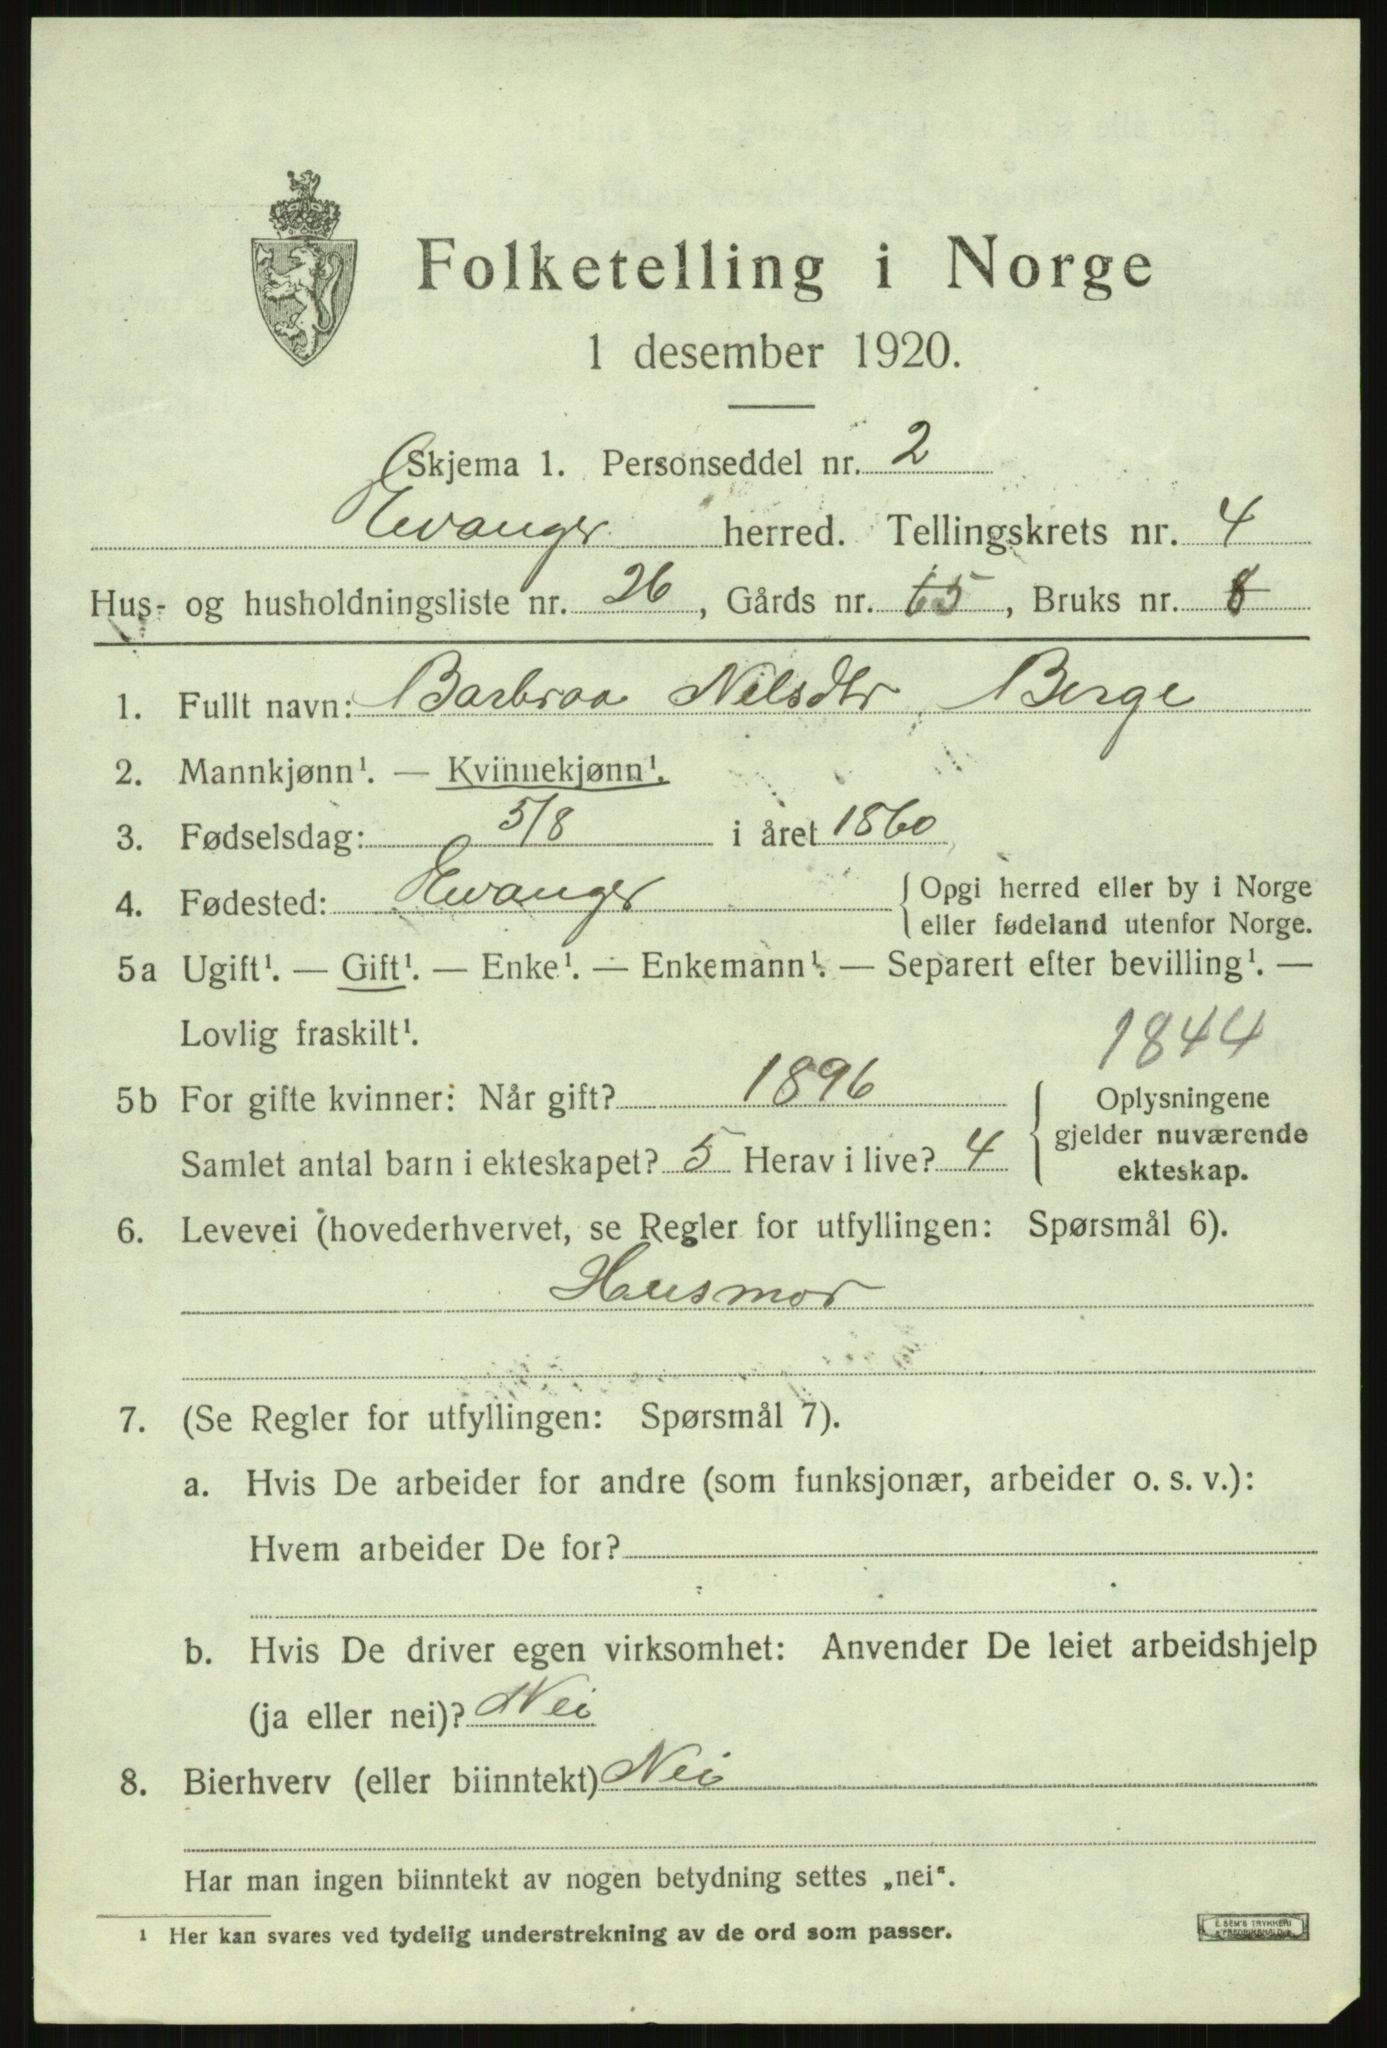 Folketelling i Norge
1 desember 1920.
Skjema 1. Personseddel nr. 2
Evanger herred. Tellingskrets nr. 4
Hus- og husholdningsliste nr. 26, Gårds nr. 65, Bruks nr. 8
1. Fullt navn: Barbraa Nilsdtr Berge
2. Mannkjønn¹. — Kvinnekjønn¹.
3. Fødselsdag: 5/8 i året 1860
4. Fødested: Evanger { Opgi herred eller by i Norge
eller fødeland utenfor Norge.
5a Ugift¹. — Gift¹. — Enke¹. — Enkemann¹. — Separert efter bevilling¹. —
Lovlig fraskilt¹.
1844
5b For gifte kvinner: Når gift? 1896
Samlet antal barn i ekteskapet? 5 Herav i live? 4
Oplysningene
gjelder nuværende
ekteskap.
6. Levevei (hovederhvervet, se Regler for utfyllingen: Spørsmål 6).
Husmor
7. (Se Regler for utfyllingen: Spørsmål 7).
a. Hvis De arbeider for andre (som funksjonær, arbeider o. s. v.):
Hvem arbeider De for?
b. Hvis De driver egen virksomhet: Anvender De leiet arbeidshjelp
(ja eller nei)? Nei
8. Bierhverv (eller biinntekt) Nei
Har man ingen biinntekt av nogen betydning settes „nei“.
¹ Her kan svares ved tydelig understrekning av de ord som passer.
E. SEM'S TRYKKERI
FREDRIKSHALD